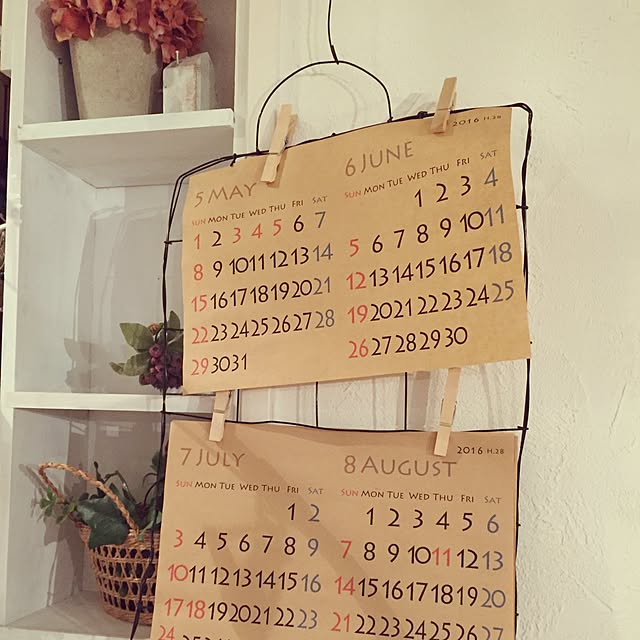 2016 H.28
5 MAY
SUN MON TUE WED THU FRI SAT
1 2 3 4 5 6 7
8 9 10 11 12 13 14
15 16 17 18 19 20 21
22 23 24 25 26 27 28
29 30 31
6 JUNE
SUN MON TUE WED THU FRI SAT
1 2 3 4
5 6 7 8 9 10 11
12 13 14 15 16 17 18
19 20 21 22 23 24 25
26 27 28 29 30
2016 H.28
7 JULY
SUN MON TUE WED THU FRI SAT
1 2
3 4 5 6 7 8 9
10 11 12 13 14 15 16
17 18 19 20 21 22 23
24
8 AUGUST
SUN MON TUE WED THU FRI SAT
1 2 3 4 5 6
7 8 9 10 11 12 13
14 15 16 17 18 19 20
21 22 23 24 25 26 27